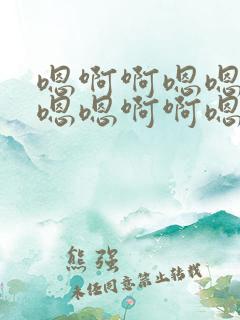 嗯啊啊嗯嗯
嗯嗯啊啊嗯
熊强
未经同意禁止转载